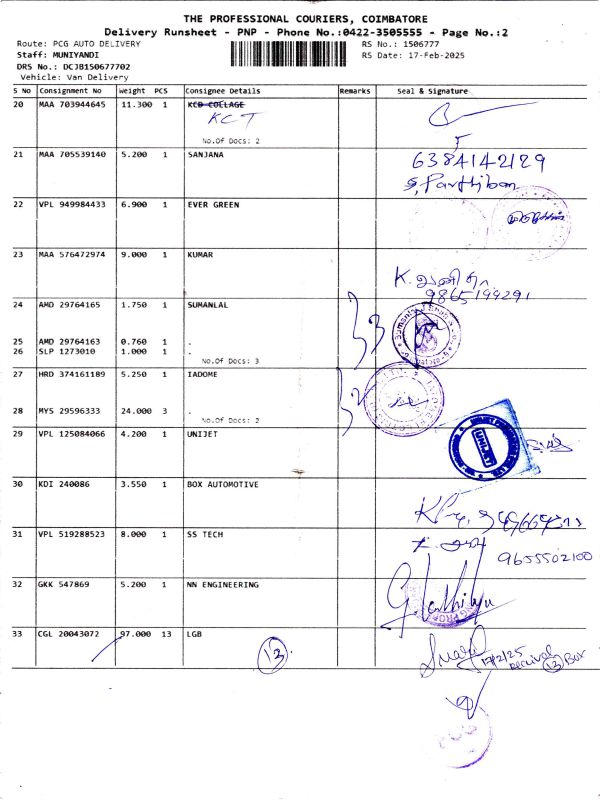 THE PROFESSIONAL COURIERS, COIMBATORE
Delivery Runsheet - PNP - Phone No.:0422-3505555 - Page No.:2
Route: PCG AUTO DELIVERY RS No.: 1506777
Staff: MUNIYANDI RS Date: 17-Feb-2025
DRS No.: DCJB150677702
Vehicle: Van Delivery
S No Consignment No Weight PCS Consignee Details Remarks Seal & Signature
20 MAA 703944645 11.300 1 KCD COLLAGE
KCT
No.Of Docs: 2
21 MAA 705539140 5.200 1 SANJANA 6384142129
S. Parthiban
22 VPL 949984433 6.900 1 EVER GREEN
23 MAA 576472974 9.000 1 KUMAR
K. வனிதா
9865199291
24 AMD 29764165 1.750 1 SUMANLAL
3
25 AMD 29764163 0.760 1 .
26 SLP 1273010 1.000 1 .
No.Of Docs: 3
27 HRD 374161189 5.250 1 IADOME
2
28 MYS 29596333 24.000 3 .
No.Of Docs: 2
29 VPL 125084066 4.200 1 UNIJET
UNIJET
30 KDI 240086 3.550 1 BOX AUTOMOTIVE
31 VPL 519288523 8.000 1 SS TECH
9655502100
32 GKK 547869 5.200 1 NN ENGINEERING
33 CGL 20043072 97.000 13 LGB
13
17/2/25
Received
13 Box